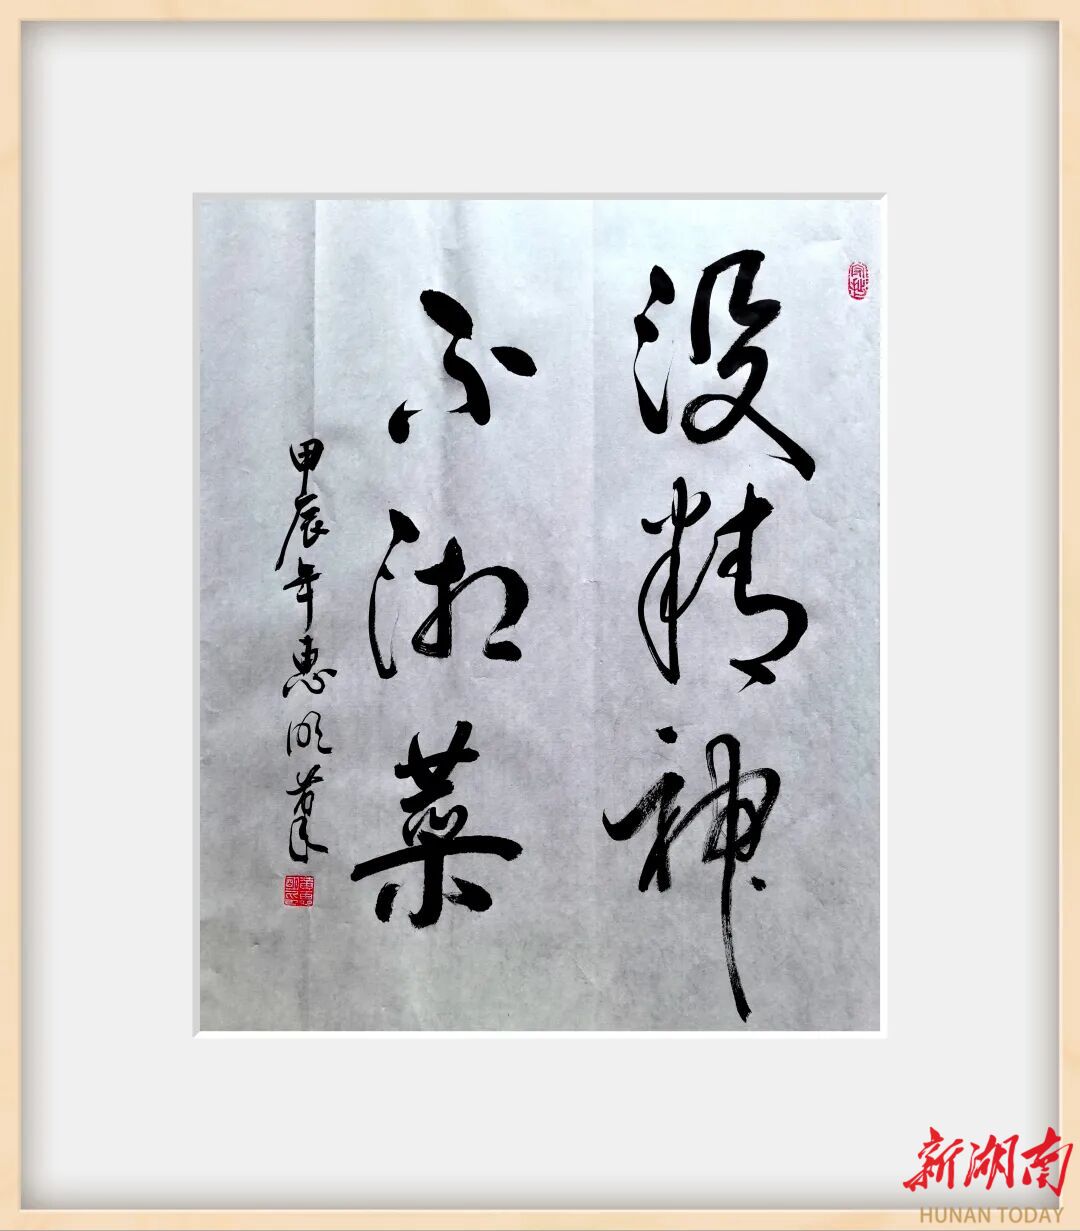 没精神
不湘菜
甲辰年惠明草
新湖南
HUNAN TODAY